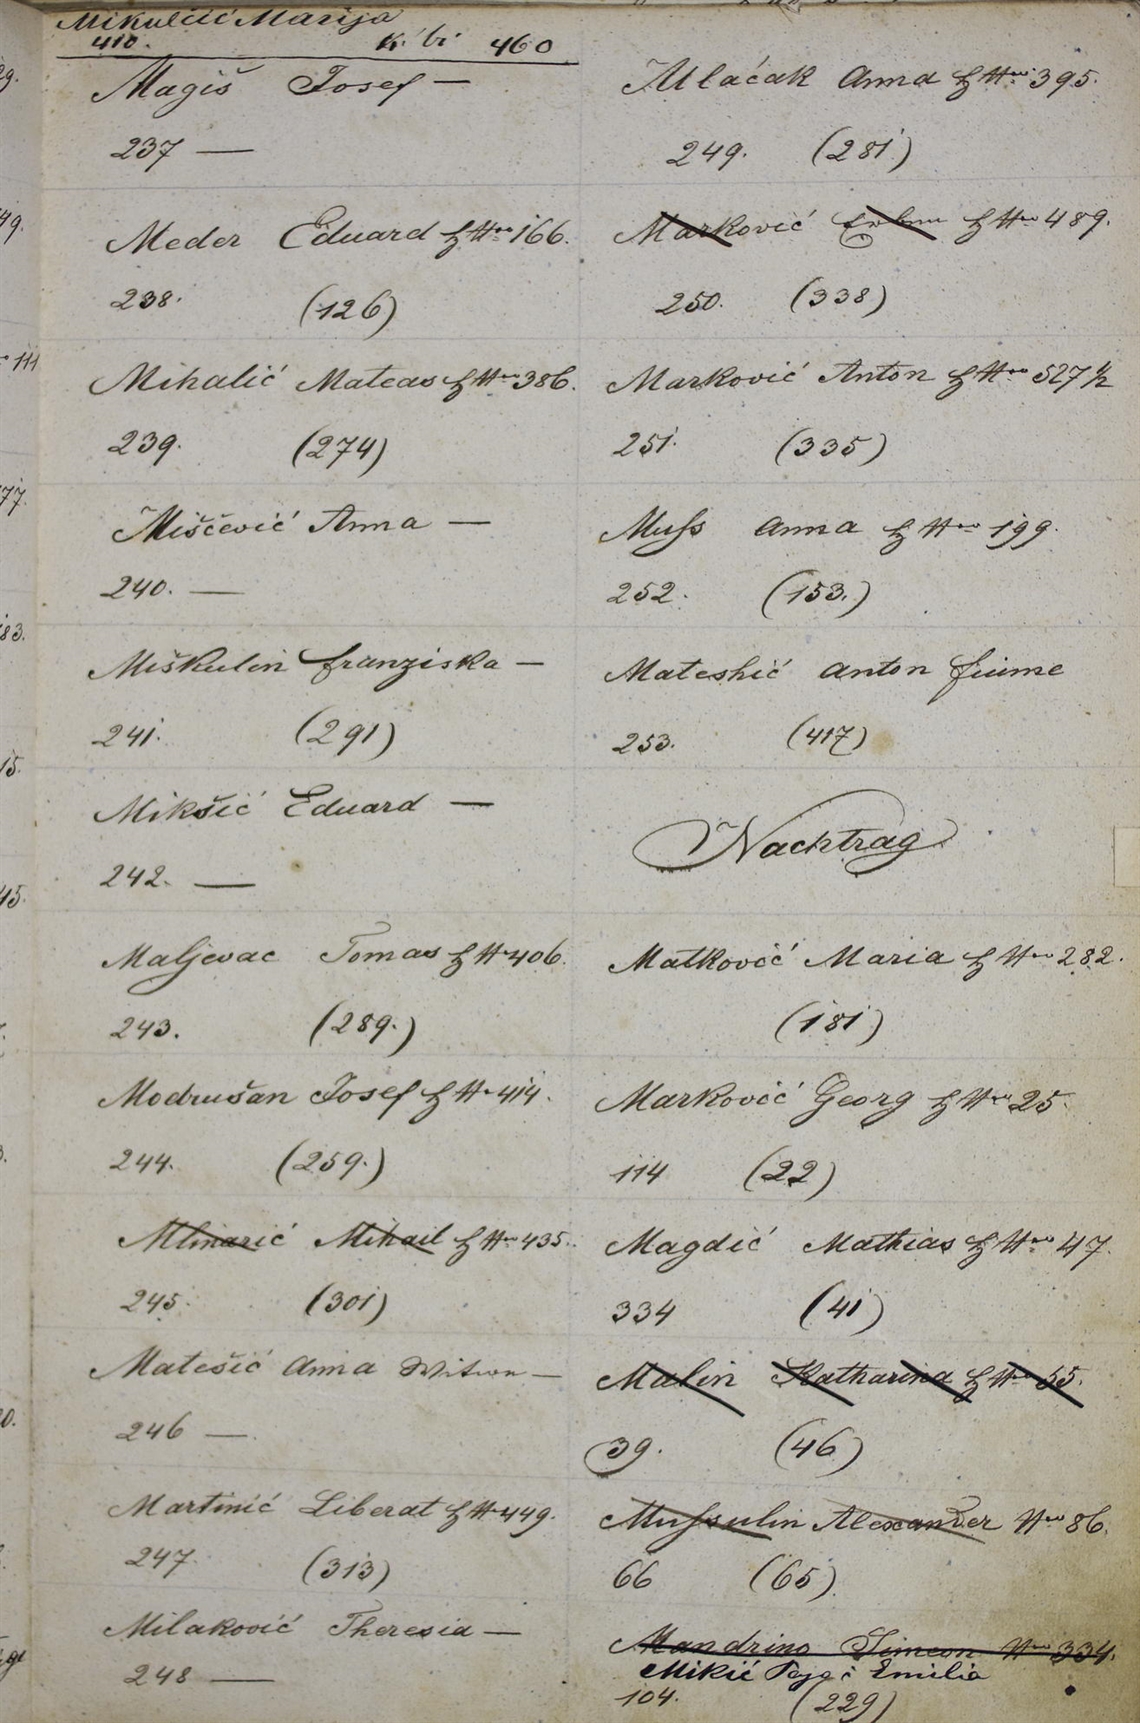 Mikulčić Marija
410. k. br. 460
Magiš Josef —
237 —
Meder Eduard H Nro 166.
238. (126)
Mihalić Mateas H Nro 386.
239. (274)
Miščević Anna —
240. —
Miškulin Franziska —
241. (291)
Mikšić Eduard —
242. —
Maljevac Tomas H Nro 406.
243. (289.)
Modrušan Josef H Nro 414.
244. (259.)
Mlinarić Mihail H Nro 435.
245. (301)
Matešić Anna Witwe —
246 —
Martinić Liberat H Nro 449.
247. (313)
Milaković Theresia —
248 —
Mlačak Anna H Nro 395.
249. (281)
Marković H Nro 489.
250. (338)
Marković Anton H Nro 527 1/2
251. (335)
Muſs Anna H Nro 199.
252. (153.)
Mateshić Anton Fiume
253. (417)
Nachtrag
Matković Maria H Nro 282.
(181)
Marković Georg H Nro 25.
114 (22)
Magdić Mathias H Nro 47.
334 (41)
Malin Katharina H Nro 55.
39. (46)
Muſsulin Alexander Nro 86.
66 (65)
Mandrino Simeon Nro 334.
Mikić Paja i Emilia
104. (229)